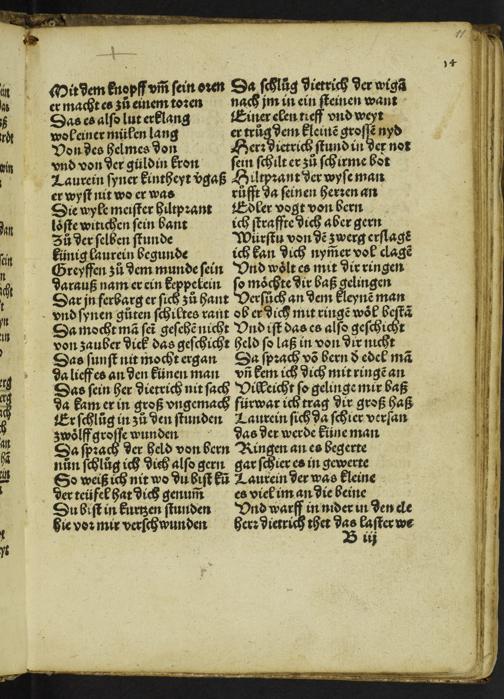 11
14
Mit dem knopff vm̄ sein oren
er macht es zů einem toren
Das es also lut erklang
wol einer mülen lang
Von des helmes don
vnd von der güldin kron
Laurein syner kintheyt vgaß
er wyst nit wo er was
Die wyle meister hiltprant
löste wittichen sein bant
Zů der selben stunde
künig laurein begunde
Greyffen zů dem munde sein
darauß nam er ein keppelein
Dar jn ferbarg er sich zů hant
vnd synen gůten schiltes rant
Da mocht mā seē geschē nicht
von zauber dick das geschicht
Das sunst nit mocht ergan
da lieff es an den künen man
Das sein her dietrich nit sach
da kam er in groß vngemach
Er schlůg in zů den stunden
zwölff grosse wunden
Da sprach der held von bern
nůn schlůg ich dich also gern
So weiß ich nit wo du bist kū
der teüfel hat dich genum̄
Du bist in kurtzen stunden
hie vor mir verschwunden
Da schlůg dietrich der wigā
nach jm in ein steinen want
Einer elen tieff vnd weyt
er trůg dem kleinē grossē nyd
Herr dietrich stund in der not
sein schilt er zů schirme bot
Hiltprant der wyse man
růfft da seinen herren an
Edler vogt von bern
ich straffte dich aber gern
Würstu von dē zwerg erslagē
ich kan dich nym̄er vol clagē
Vnd wölt es mit dir ringen
so möchte dir baß gelingen
Versůch an dem kleynē man
ob er dich mit ringē wöl bestā
Vnd ist das es also geschicht
held so laß in von dir nicht
Da sprach vō bern d edel mā
vn̄ kem ich dich mit ringē an
Villeicht so gelinge mir baß
fürwar ich trag dir groß haß
Laurein sich da schier versan
das der werde küne man
Ringen an es begerte
gar schier es in gewerte
Laurein der was kleine
es viel im an die beine
Vnd warff in nider in den cle
herr dietrich thet das laster we
B iij